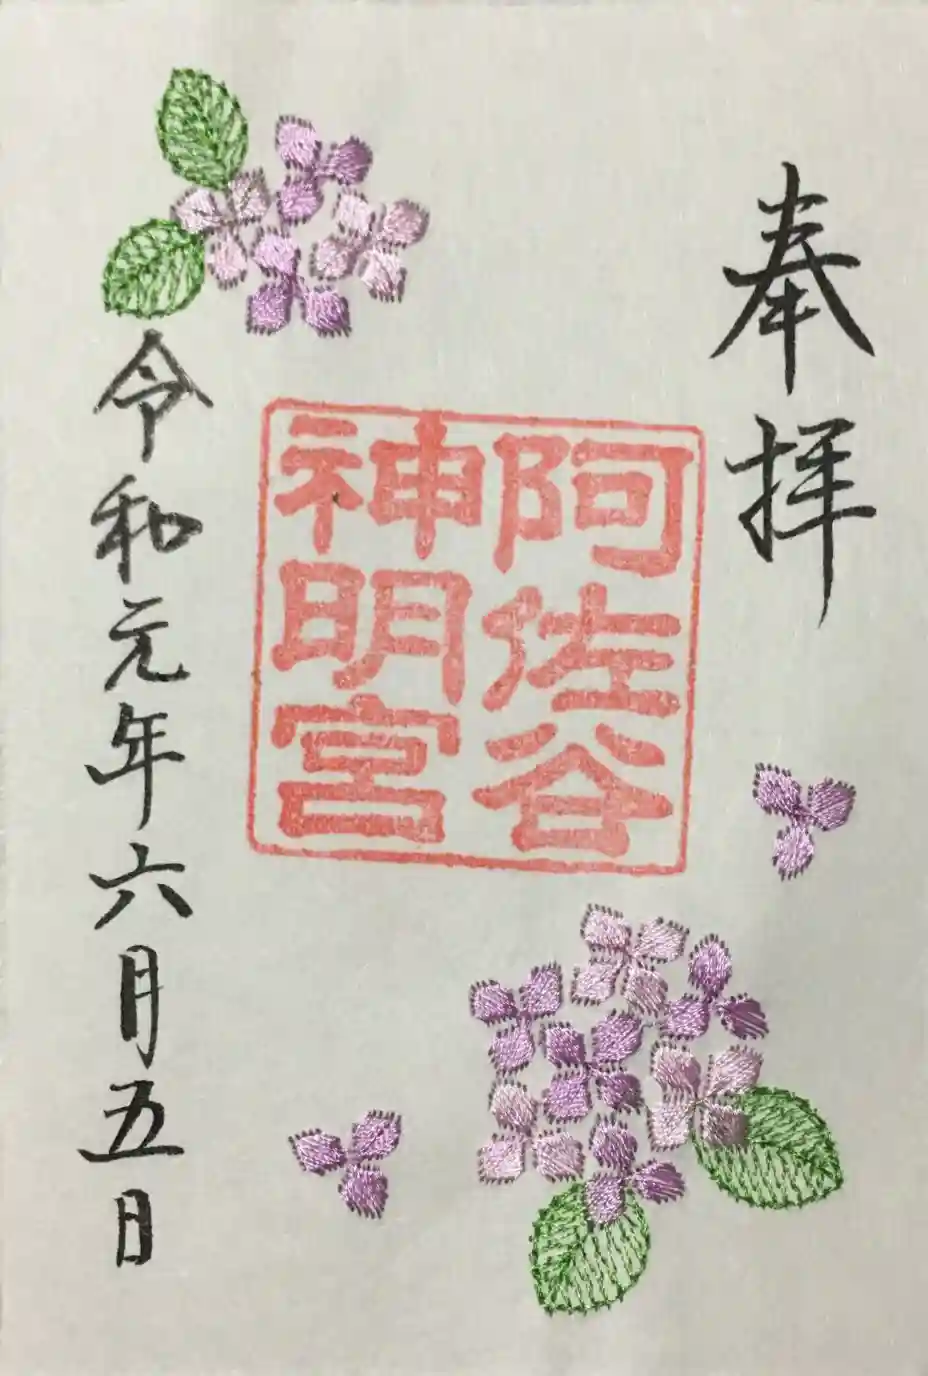 奉拝
阿佐谷
神明宮
令和元年六月五日